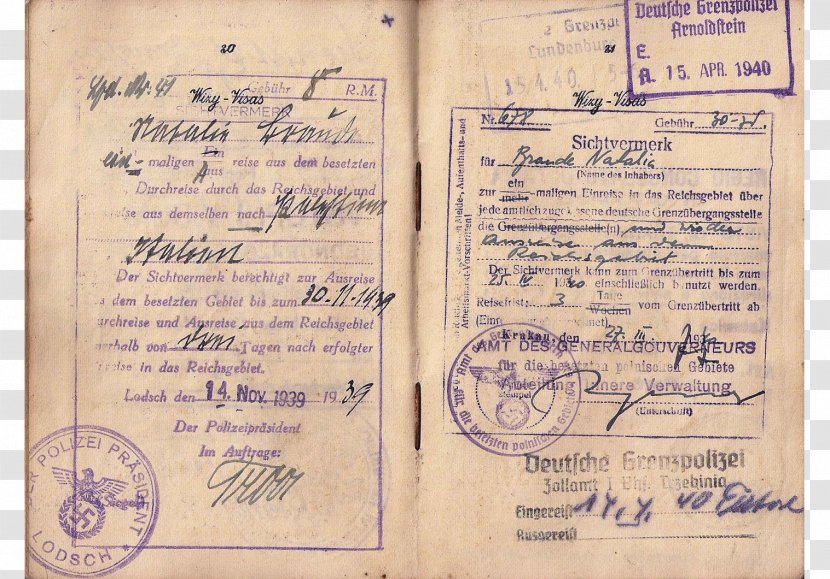 20
Wizy - Visas
Gebühr 8 R.M.
SICHTVERMERK
Natalie Braude
ein - maligen Ein reise aus dem besetzten
aus
Durchreise durch das Reichsgebiet und
reise aus demselben nach Palästina
Italien
Der Sichtvermerk berechtigt zur Ausreise
s dem besetzten Gebiet bis zum 30.11.1939
urchreise und Ausreise aus dem Reichsgebiet
nerhalb von drei Tagen nach erfolgter
reise in das Reichsgebiet.
Lodsch den 14. Nov. 1939 1939
Der Polizeipräsident
Im Auftrage:
DER POLIZEI PRÄSIDENT
LODSCH
21
Grenzpol
Lundenburg
15.4.40
Deutsche Grenzpolizei
Arnoldstein
E.
A. 15. APR. 1940
Wizy - Visas
Nr. 678 Gebühr 30-
Sichtvermerk
für Braude Natalia
(Name des Inhabers)
zur ein
mehr -maligen Einreise in das Reichsgebiet über
jede amtlich zugelassene deutsche Grenzübergangsstelle
die Grenzübergangsstelle(n) und wieder
Ausreise aus dem
Reichsgebiet
Der Sichtvermerk kann zum Grenzübertritt bis zum
25. IV 1940 einschließlich benutzt werden.
Reisefrist: 3 Tage
Wochen vom Grenzübertritt ab
Krakau, den 27. III.
AMT DES GENERALGOUVERNEURS
für die besetzten polnischen Gebiete
Abteilung Innere Verwaltung
Stempel
(Unterschrift)
Deutsche Grenzpolizei
Zollamt I Bhf. Trzebinia
Eingereist 14. 4. 40
Ausgereist